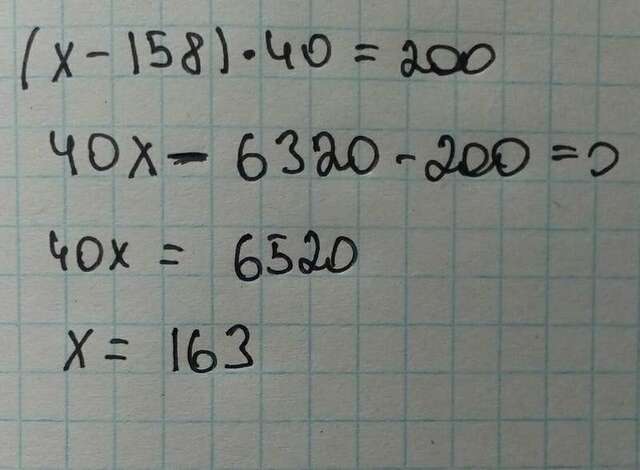 (x - 158) · 40 = 200
40x - 6320 - 200 = 0
40x = 6520
x = 163